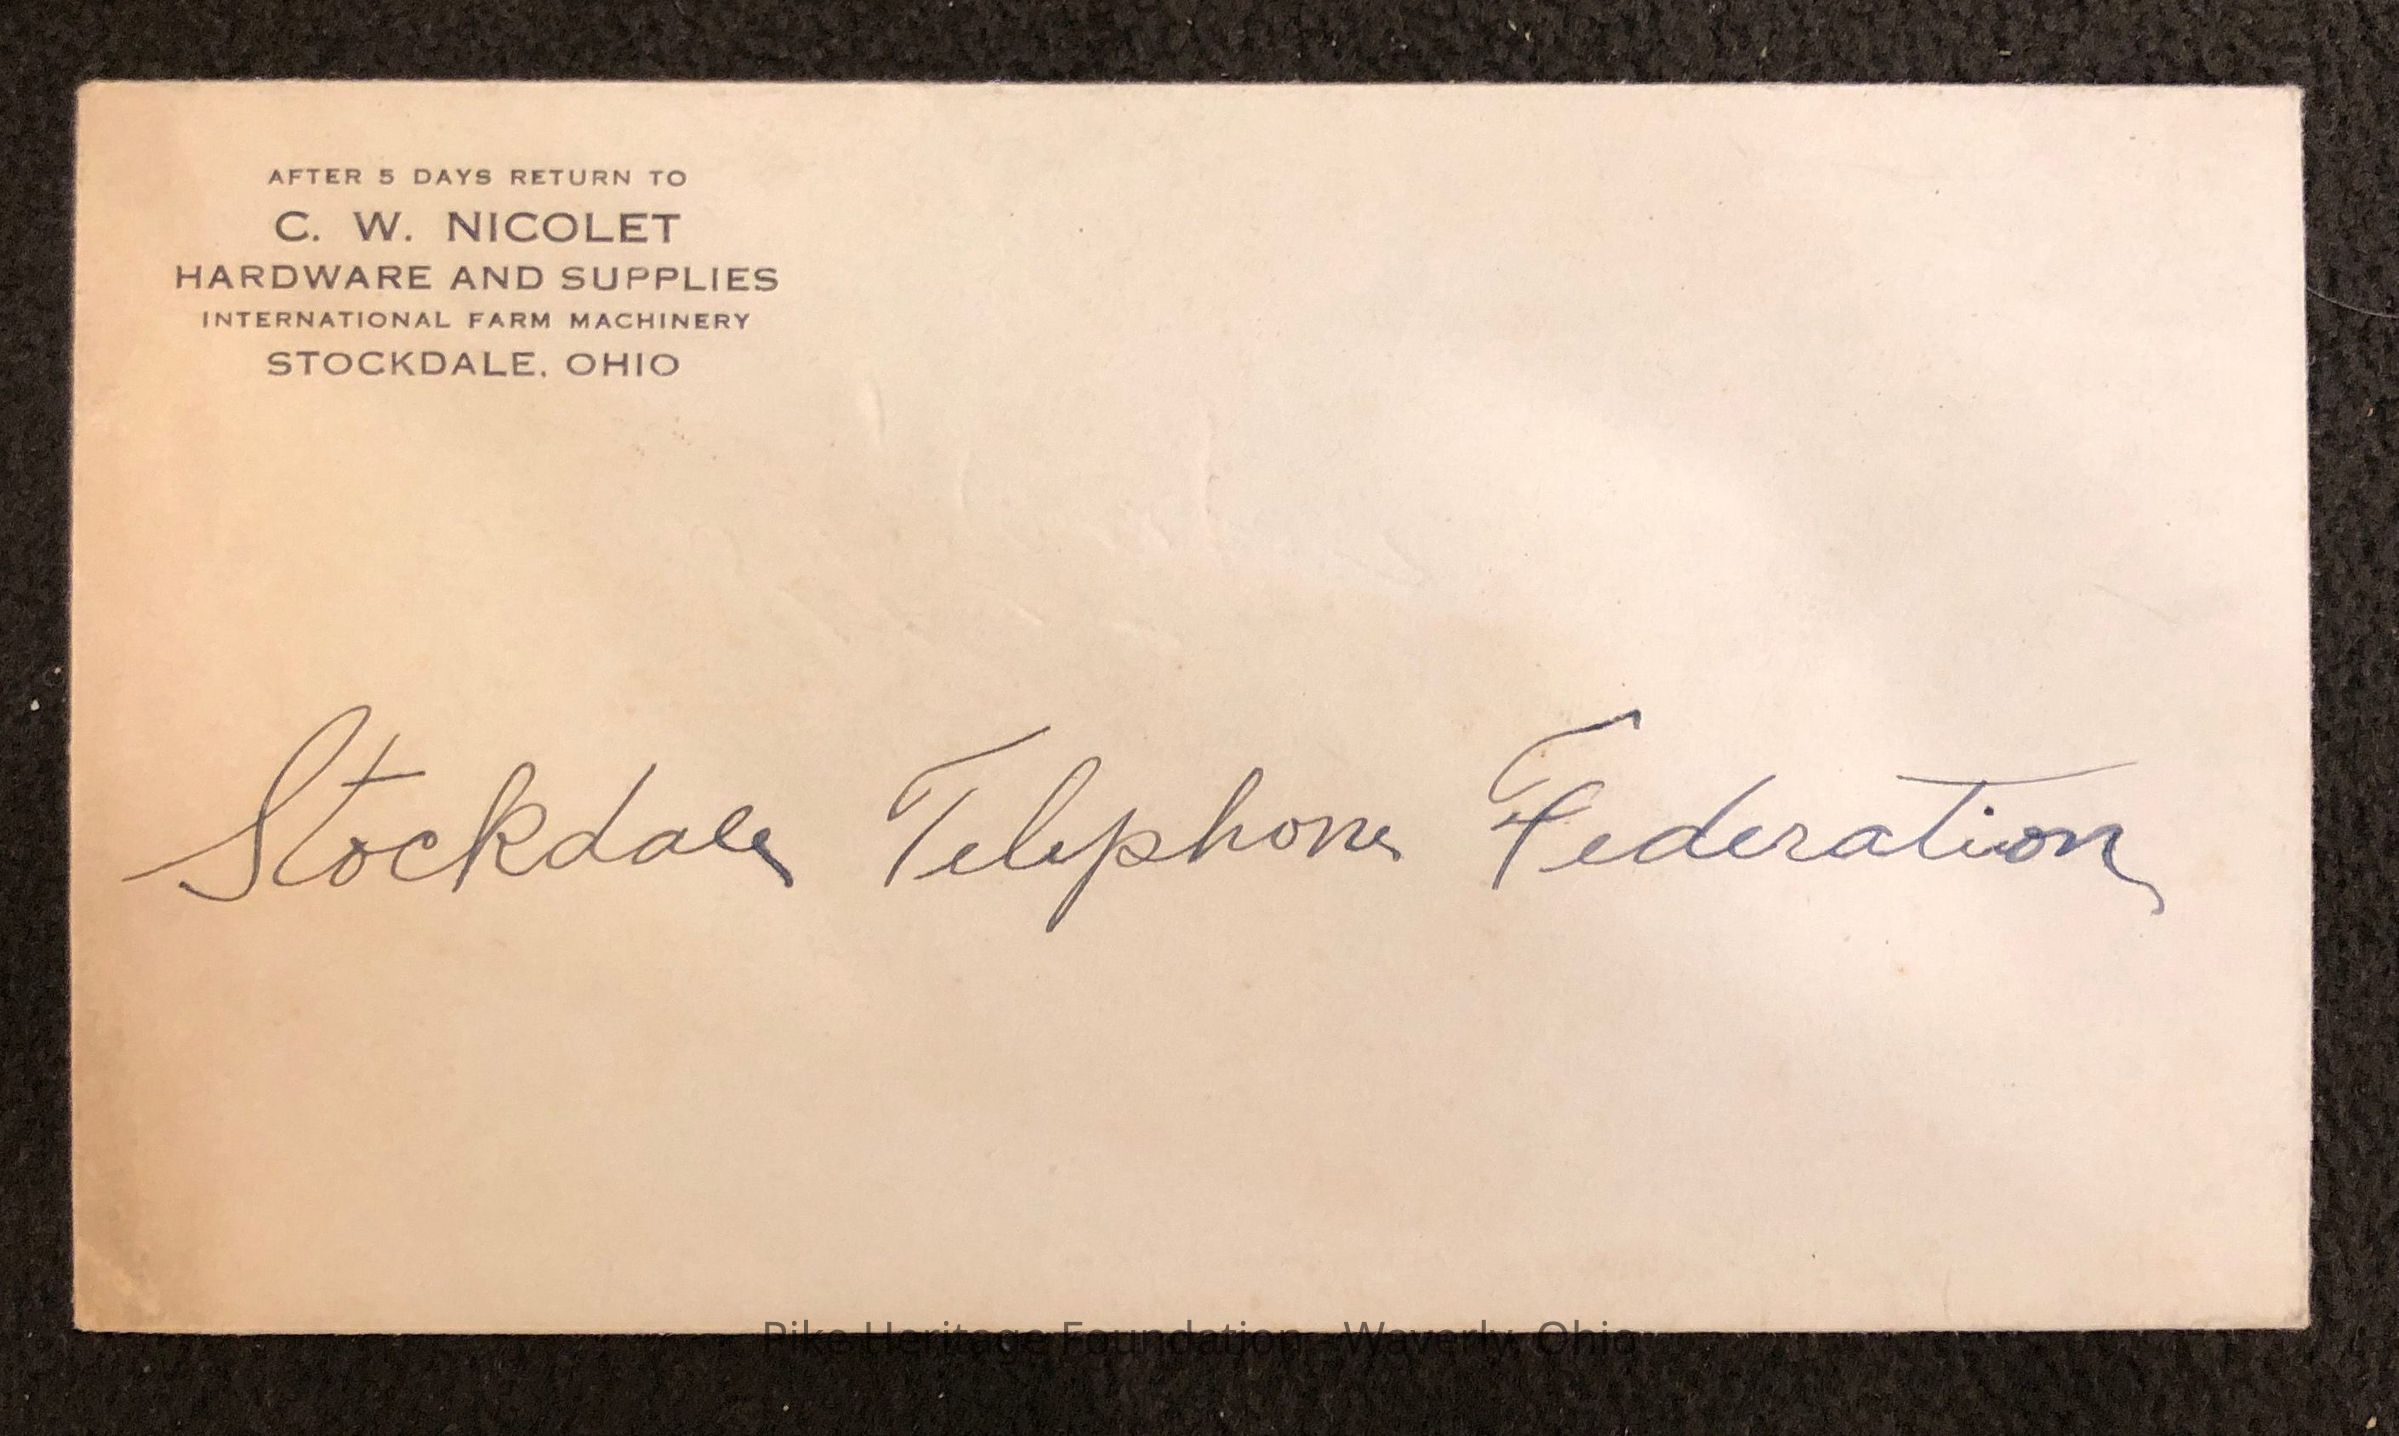 AFTER 5 DAYS RETURN TO
C. W. NICOLET
HARDWARE AND SUPPLIES
INTERNATIONAL FARM MACHINERY
STOCKDALE, OHIO
Stockdale Telephone Federation
Pike Heritage Foundation - Waverly, Ohio